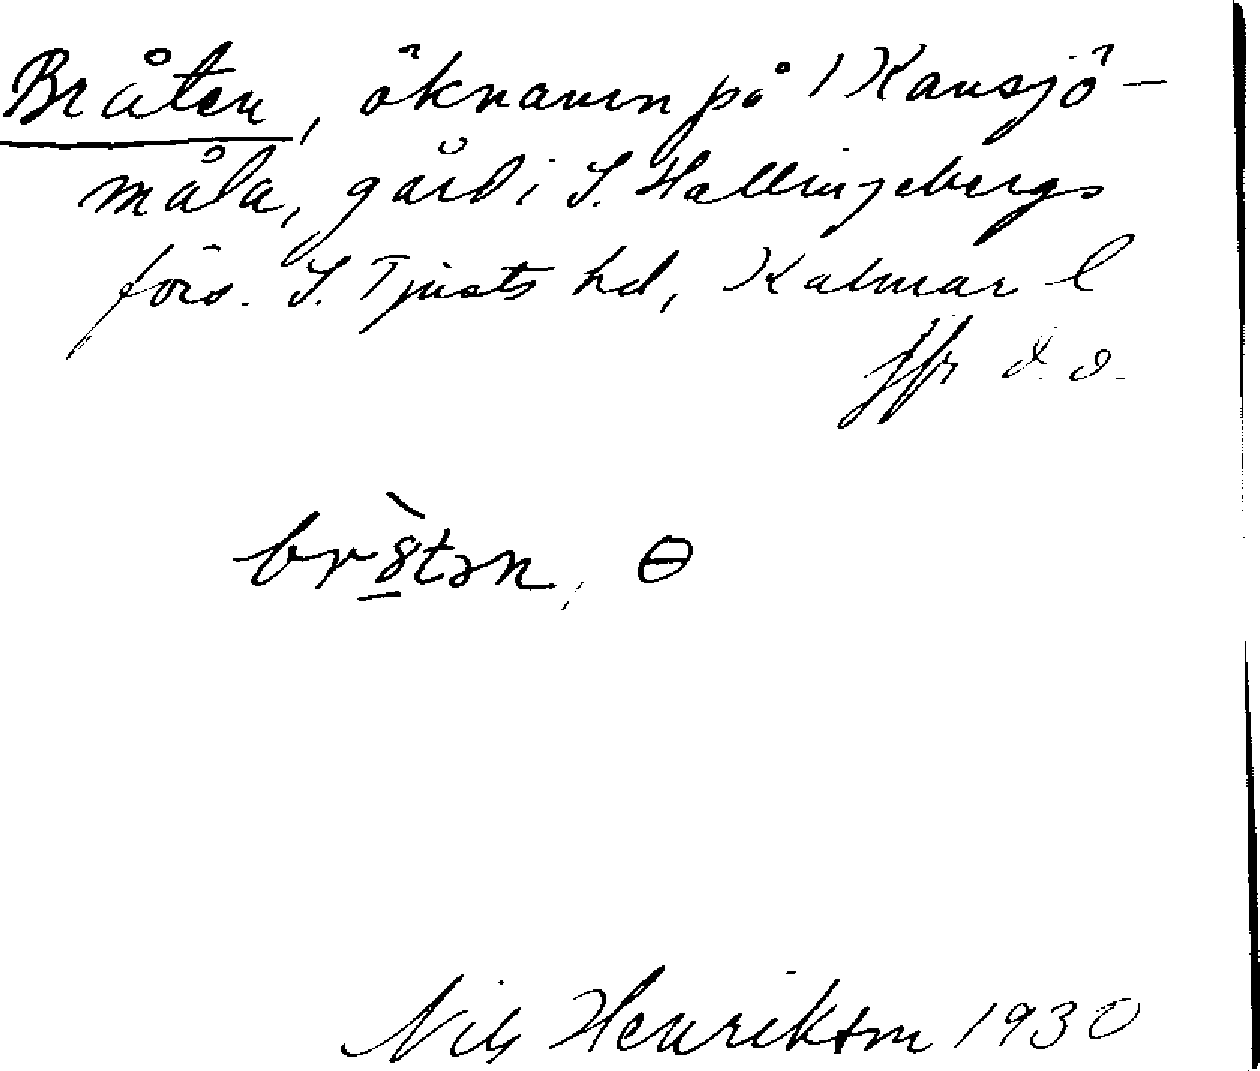 Bråten, öknamn på Kansjö-
måla, gård i S. Hallingebergs
förs. S. Tjusts hd, Kalmar l
jfr d. o.
bròtən, ө
Nils Henrikson 1930